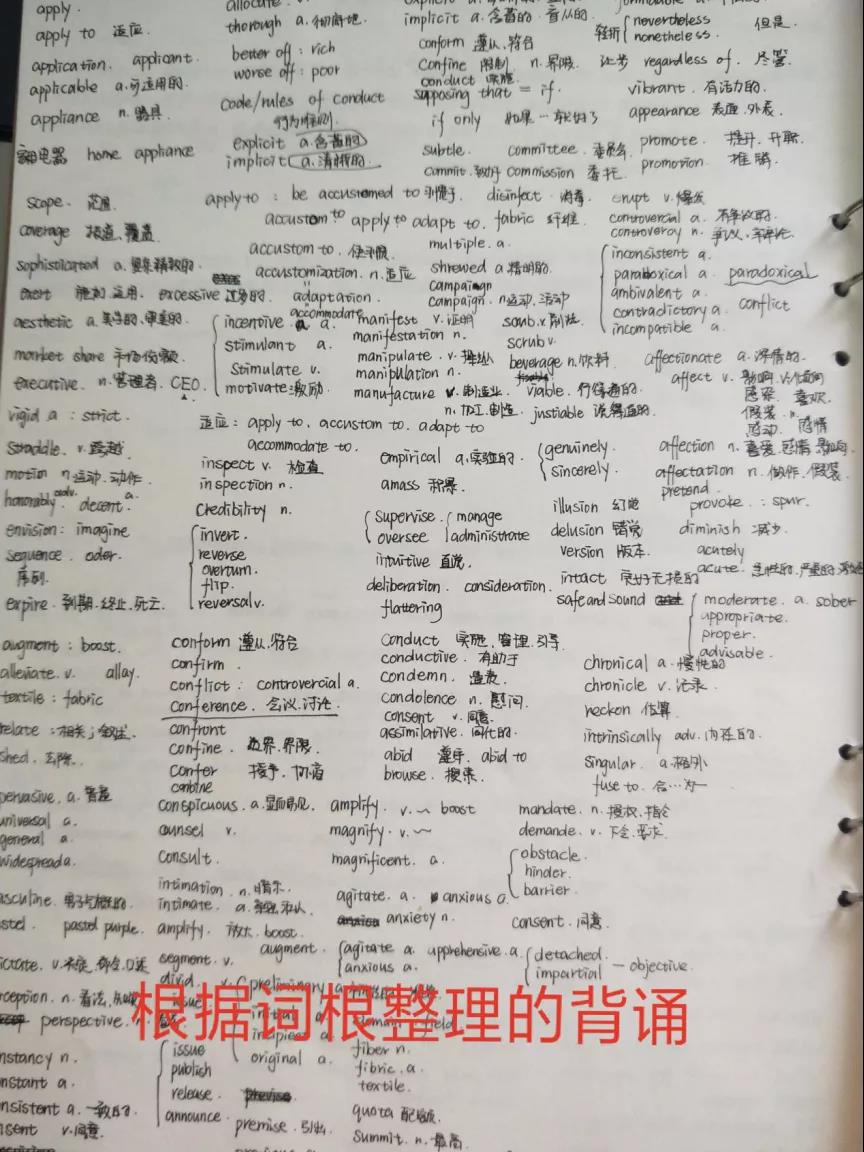 apply.
allocate
apply to 适应
thorough a. 彻底地
implicit a. 含蓄的
nevertheless
nonetheless.
转折
但是.
application. applicant.
better off : rich
conform 遵从.符合
worse off : poor
confine 限制 n. 界限
让步 regardless of. 尽管.
applicable a.可运用的.
conduct 实施
code/rules of conduct
supposing that = if.
vibrant. 有活力的.
appliance n. 器具
行为准则.
if only 如果…就好了
appearance 表面.外表.
explicit a.含蓄的
家用电器 home appliance
implicit a.清晰的.
subtle. committee. 委员会
promote. 提升.升职.
commit. commission 委托.
promotion. 推销.
scope. 范围.
apply to : be accustomed to 习惯于.
disinfect. 消毒.
erupt v.爆发
accustom to apply to adapt to.
fabric 纤维.
controvercial a.
coverage 报道.覆盖
accustom to. 使习惯
multiple. a.
controversy n.
sophisticated a.
accustomization. n.适应
shrewed a.精明的.
inconsistent a.
paradoxical a. paradoxical
exert 施加.运用. excessive 过多的.
adaptation.
campaign
campaign. n运动.活动
ambivalent a.
contradictory a. conflict
incompatible a.
aesthetic a. 美学的.审美的.
accommodate
incentive a.
manifest v.证明
scrub v.刷洗
stimulant a.
manifestation n.
scrub v.
market share 市场份额.
Stimulate v.
manipulate. v.操纵
beverage n.饮料
affectionate a.深情的.
manipulation n.
executive. n.管理者. CEO.
motivate 激励
manufacture v.制造业.
viable. 行得通的.
affect v. 影响
感染. 喜欢.
n.加工.制造.
justiable 说得通的.
假装.
感动. 感情
vigid a : strict.
适应 : apply to, accustom to. adapt to
accommodate to.
straddle. v.跨越
genuinely.
sincerely.
affection n. 喜爱.感情.影响.
inspect v. 检查
empirical a.实验的.
motion n运动.动作.
inspection n.
amass 积累.
affectation n. 做作.假装.
pretend.
honorably. adv. decent. a.
Credibility n.
illusion 幻觉
provoke. : spur.
envision: imagine
invert.
supervise.
oversee
manage
administrate
delusion 错觉
diminish 减少.
sequence. oder.
序列.
reverse
intuitive 直觉.
version 版本.
acutely
overturn.
flip.
deliberation. consideration.
intact 完好无损的
acute. 急性的.严重的.
expire. 到期.终止.死亡.
reversal v.
flattering
safe and sound
moderate. a. sober
appropriate.
proper.
advisable.
augment : boost.
conform 遵从.符合
Conduct 实施.管理.引导.
alleviate. v. allay.
confirm.
conductive. 有助于
chronical a.慢性的
textile : fabric
conflict : controvercial a.
condemn. 谴责.
chronicle v.记录.
conference. 会议.讨论.
condolence n.慰问.
reckon 估算.
relate :相关; 叙述.
confront
consent v.同意.
assimilative. 同化的.
intrinsically adv. 内在的.
shed. 去除.
confine. 边界.界限.
abid 遵守. abid to
singular. a.格外
confer 授予.协商
combine
browse. 搜索.
fuse to. 合…为一
pervasive. a.普遍
conspicuous. a.显而易见.
amplify. v. ~ boost
mandate. n.授权.指令
universal a.
general a.
counsel v.
magnify. v. ~
demande. v. 下令.要求.
widespread a.
Consult.
magnificent. a.
obstacle.
hinder.
barrier.
intimation. n.暗示.
asculine. 男子气概的.
intimate. a.
agitate. a. anxious a.
stel. pastel purple.
amplify. 放大. boost.
anxiety n.
consent. 同意.
augment.
agitate a. apprehensive. a.
anxious a.
detached.
impartial — objective.
ictate. v.
segment. v.
divid. v.
preliminary a
ception. n.看法.
issue
perspective. n.
incipient a
根据词根整理的背诵
nstancy n.
issue
original a.
fiber n.
nstant a.
publish
fibric. a.
textile.
release.
nsistent a. 一致的.
announce.
premise. 引出.
quota 配额.
nsent v.同意.
Summit. n.最高.